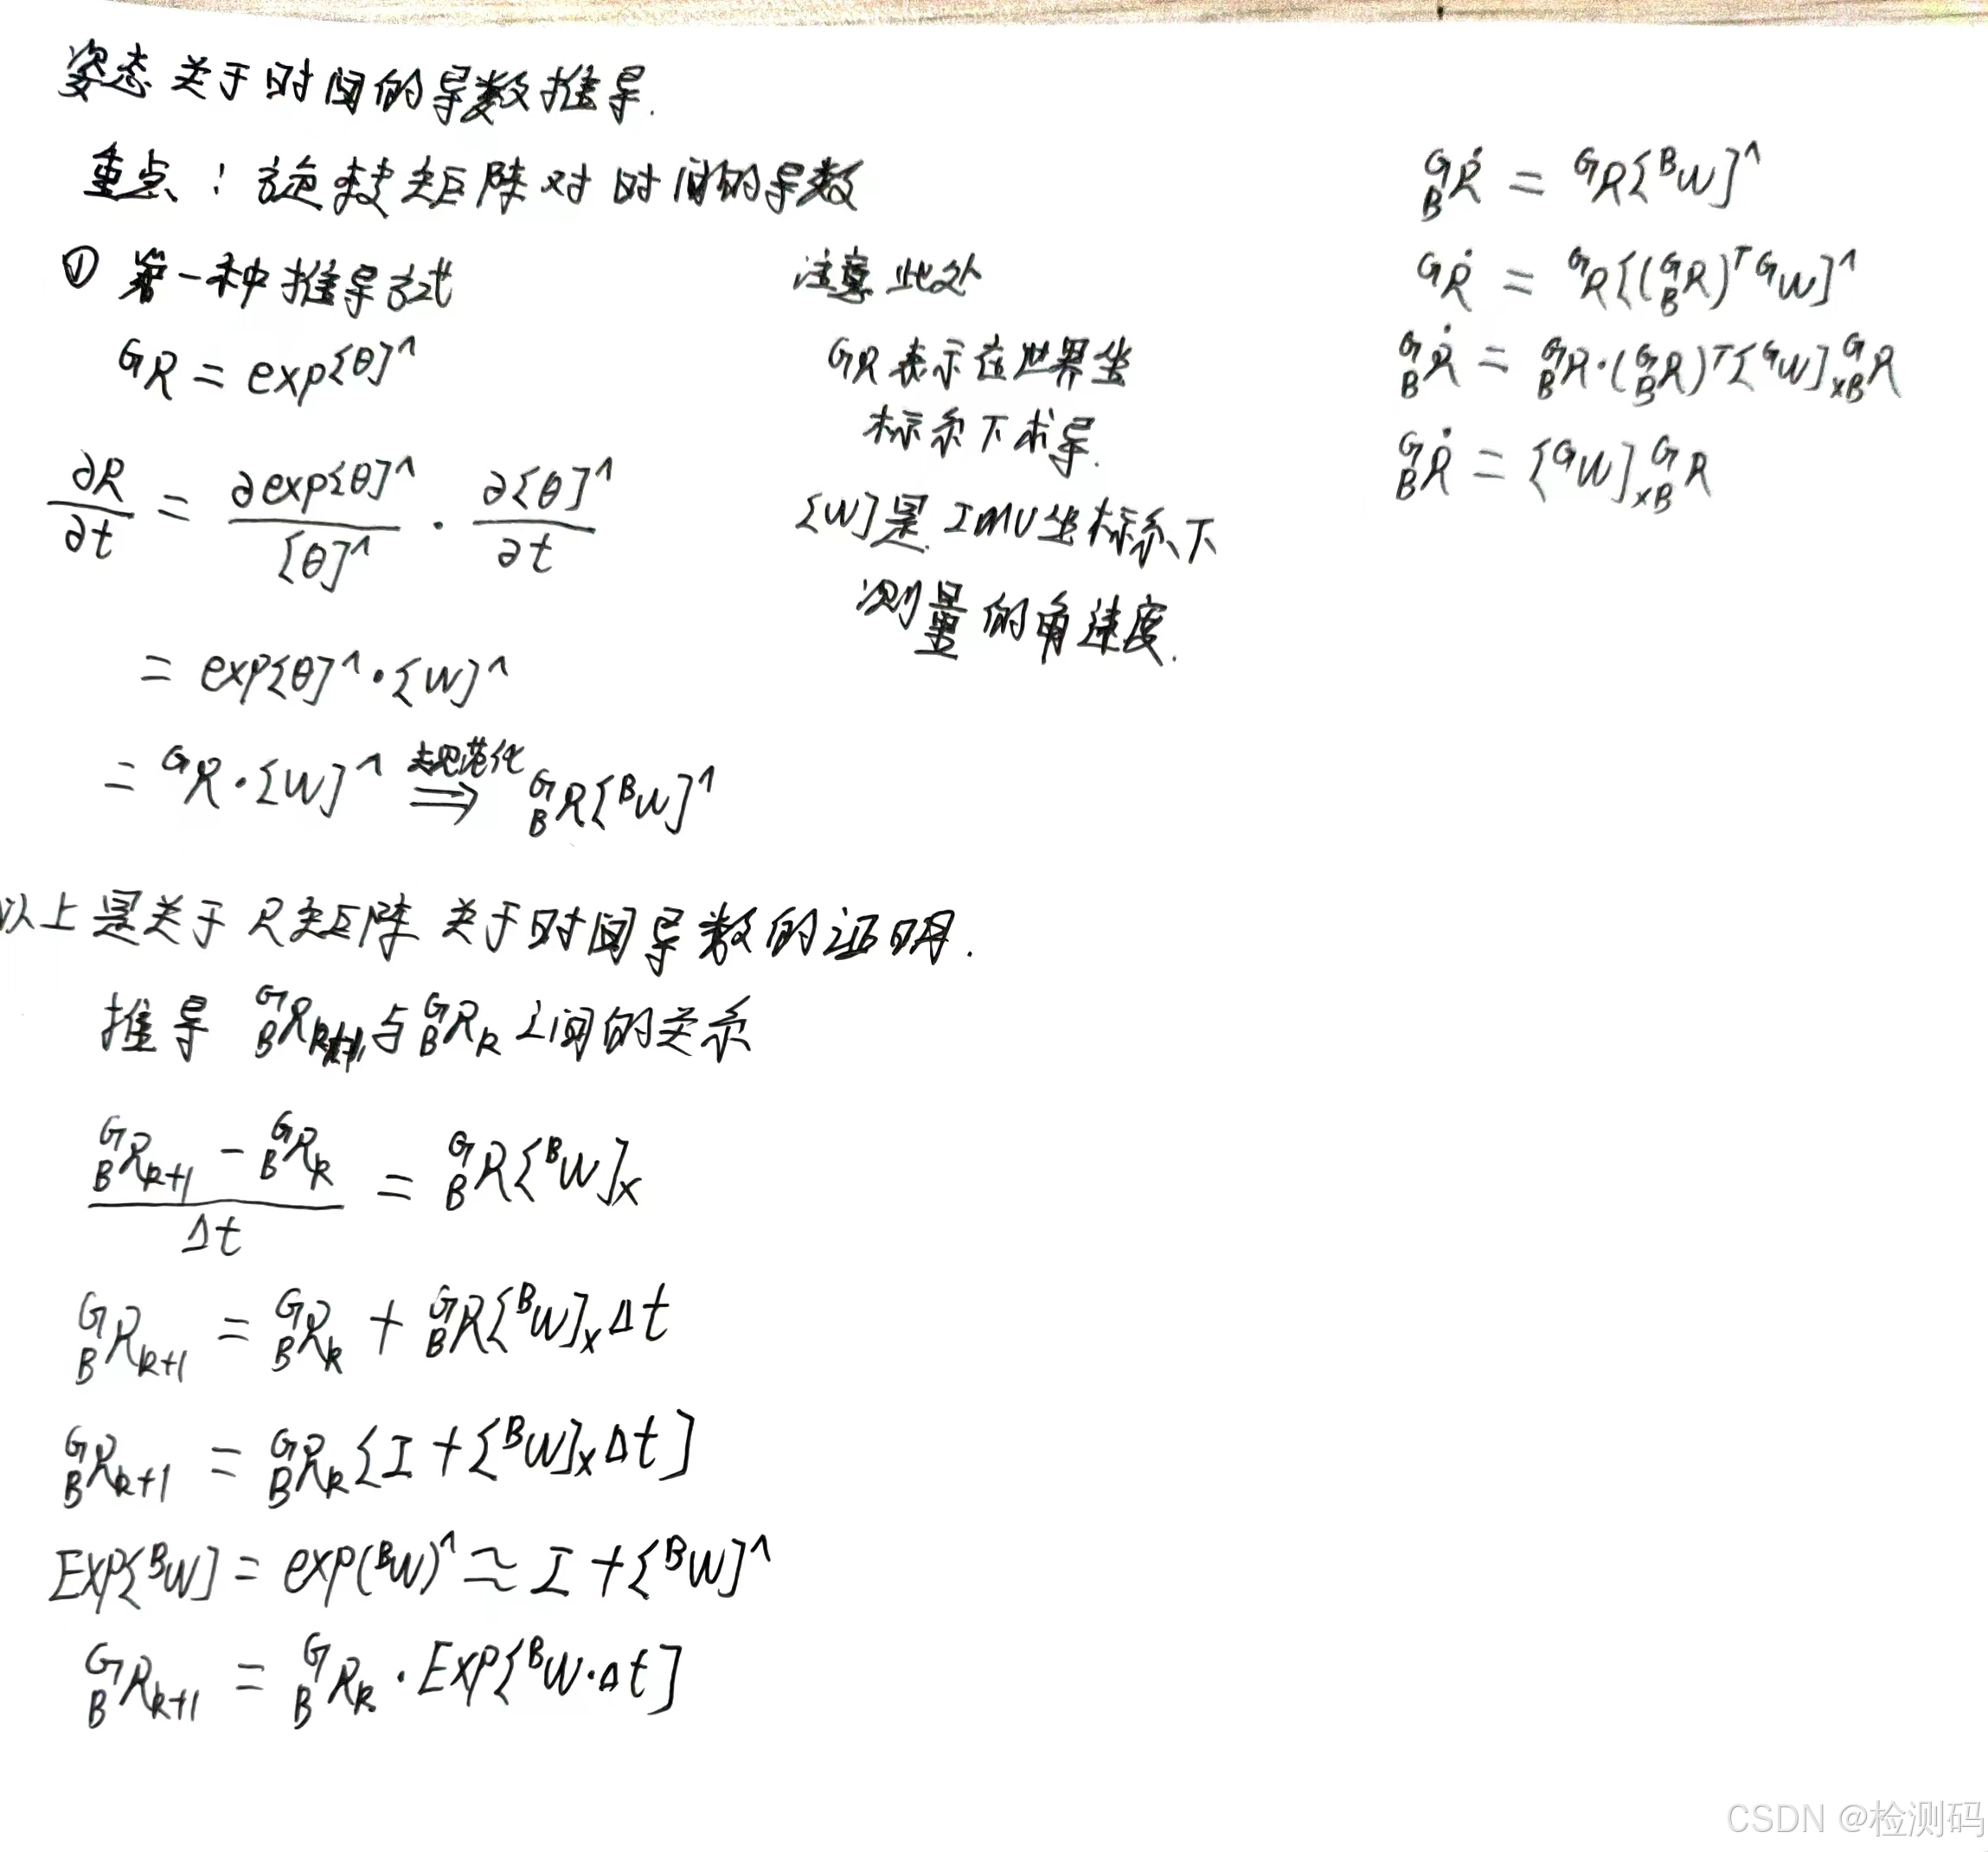 姿态关于时间的导数推导.
重点:旋转矩阵对时间的导数
① 第一种推导方式
ᴳR = exp[θ]^
∂R/∂t = ∂exp[θ]^/[θ]^ · ∂[θ]^/∂t
= exp[θ]^ · [W]^
= ᴳR · [W]^ ⟹ ᴳ_B R[ᴮW]^
注意此处
ᴳR 表示在世界坐
标系下求导.
[W]是 IMU坐标系下
测量的角速度.
ᴳ_B Ṙ = ᴳR[ᴮW]^
ᴳṘ = ᴳR[(ᴳ_B R)ᵀ ᴳW]^
ᴳ_B Ṙ = ᴳ_B R·(ᴳ_B R)ᵀ[ᴳW]ₓ ᴳ_B R
ᴳ_B Ṙ = [ᴳW]ₓ ᴳ_B R
以上是关于R矩阵关于时间导数的证明.
推导 ᴳ_B R_{k+1} 与 ᴳ_B R_k 之间的关系
(ᴳ_B R_{k+1} − ᴳ_B R_k)/Δt = ᴳ_B R[ᴮW]ₓ
ᴳ_B R_{k+1} = ᴳ_B R_k + ᴳ_B R[ᴮW]ₓ Δt
ᴳ_B R_{k+1} = ᴳ_B R_k [I + [ᴮW]ₓ Δt]
Exp[ᴮW] = exp(ᴮW)^ ≃ I + [ᴮW]^
ᴳ_B R_{k+1} = ᴳ_B R_k · Exp[ᴮW·Δt]
CSDN @检测码